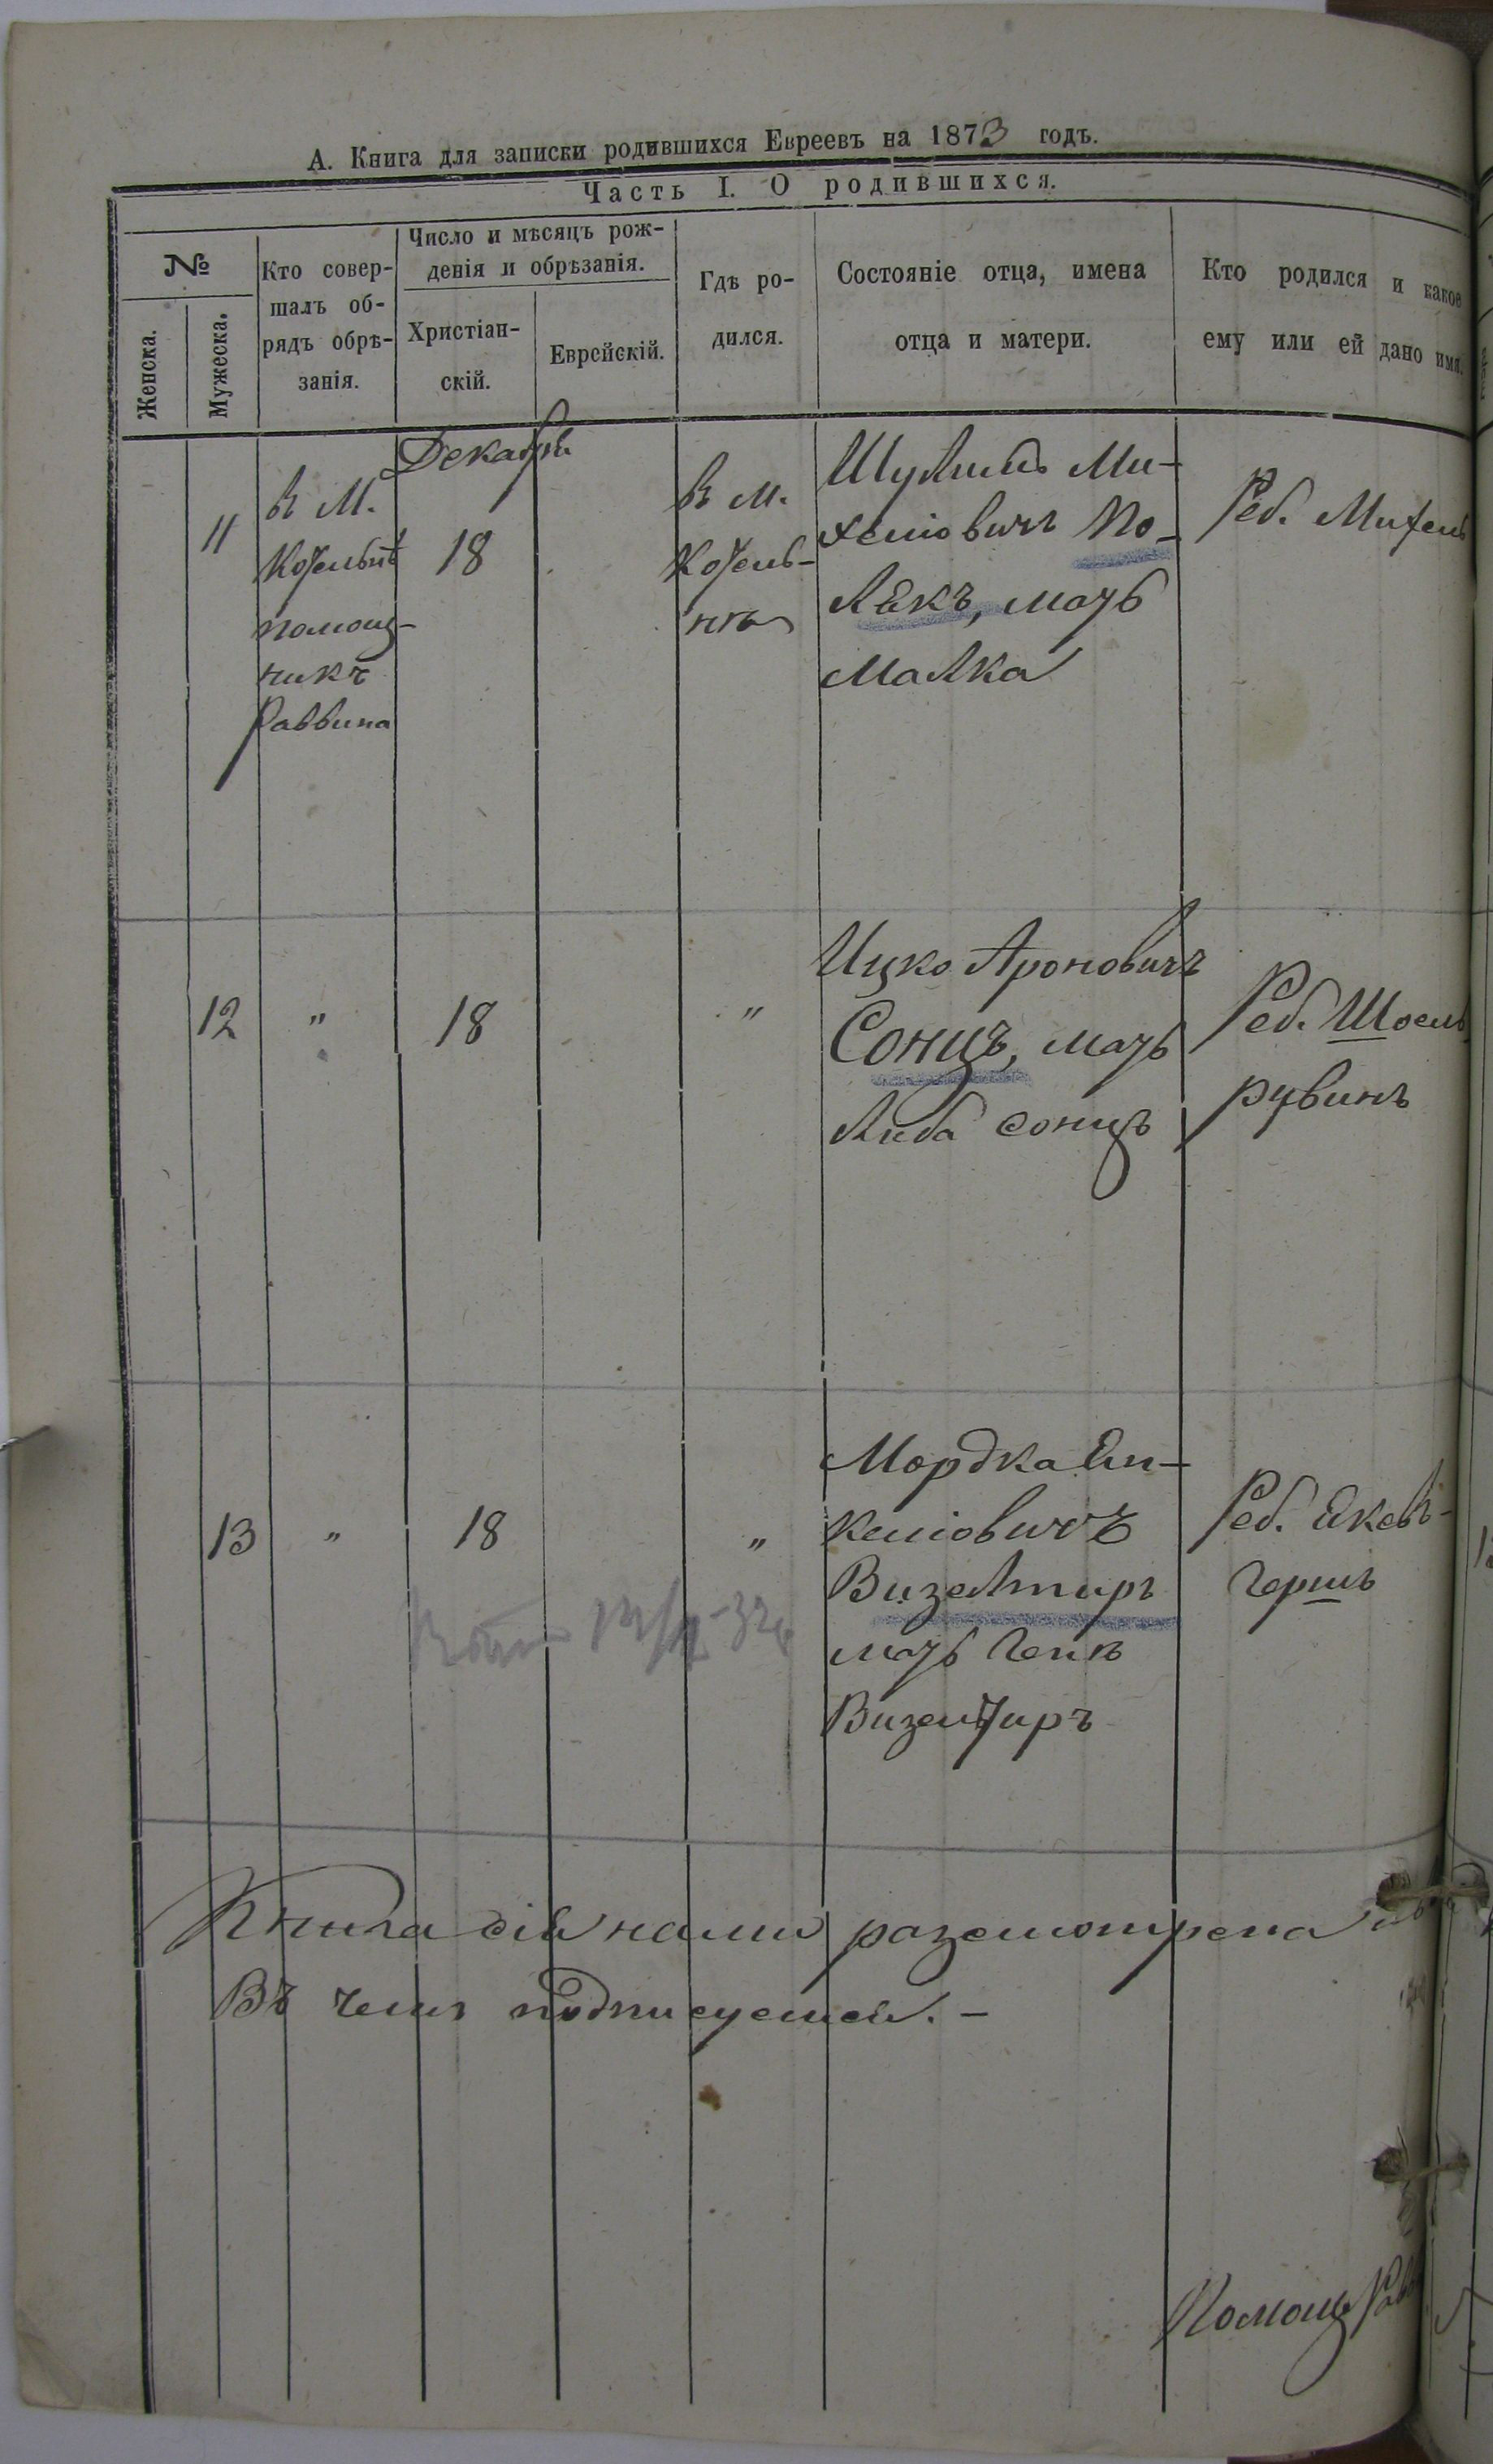 А. Книга для записки родившихся Евреевъ на 1873 годъ.
Часть I. О родившихся.
№
Женска.
Мужеска.
Кто совер-
шалъ об-
рядъ обрѣ-
занія.
Число и мѣсяцъ рож-
денія и обрѣзанія.
Христіан-
скій.
Еврейскій.
Гдѣ ро-
дился.
Состояніе отца, имена
отца и матери.
Кто родился и какое
ему или ей дано имя.
Декабрь
11
В М.
помощ-
никъ
Раввина
18
В м.
Шулимъ Ми-
хелiовичъ По-
лякъ, мать
Малка
Реб. Михель
12
"
18
"
Ицко Ароновичъ
Сонцъ, мать
Либа Сонцъ
Реб. Шоель
рувинъ
13
"
18
"
Мордка
келіовичъ
Визелтиръ
мать
Визелтиръ
Реб.
Гершъ
Книга сія нами разсмотрена
Въ чемъ подписуемся. -
Помощ.